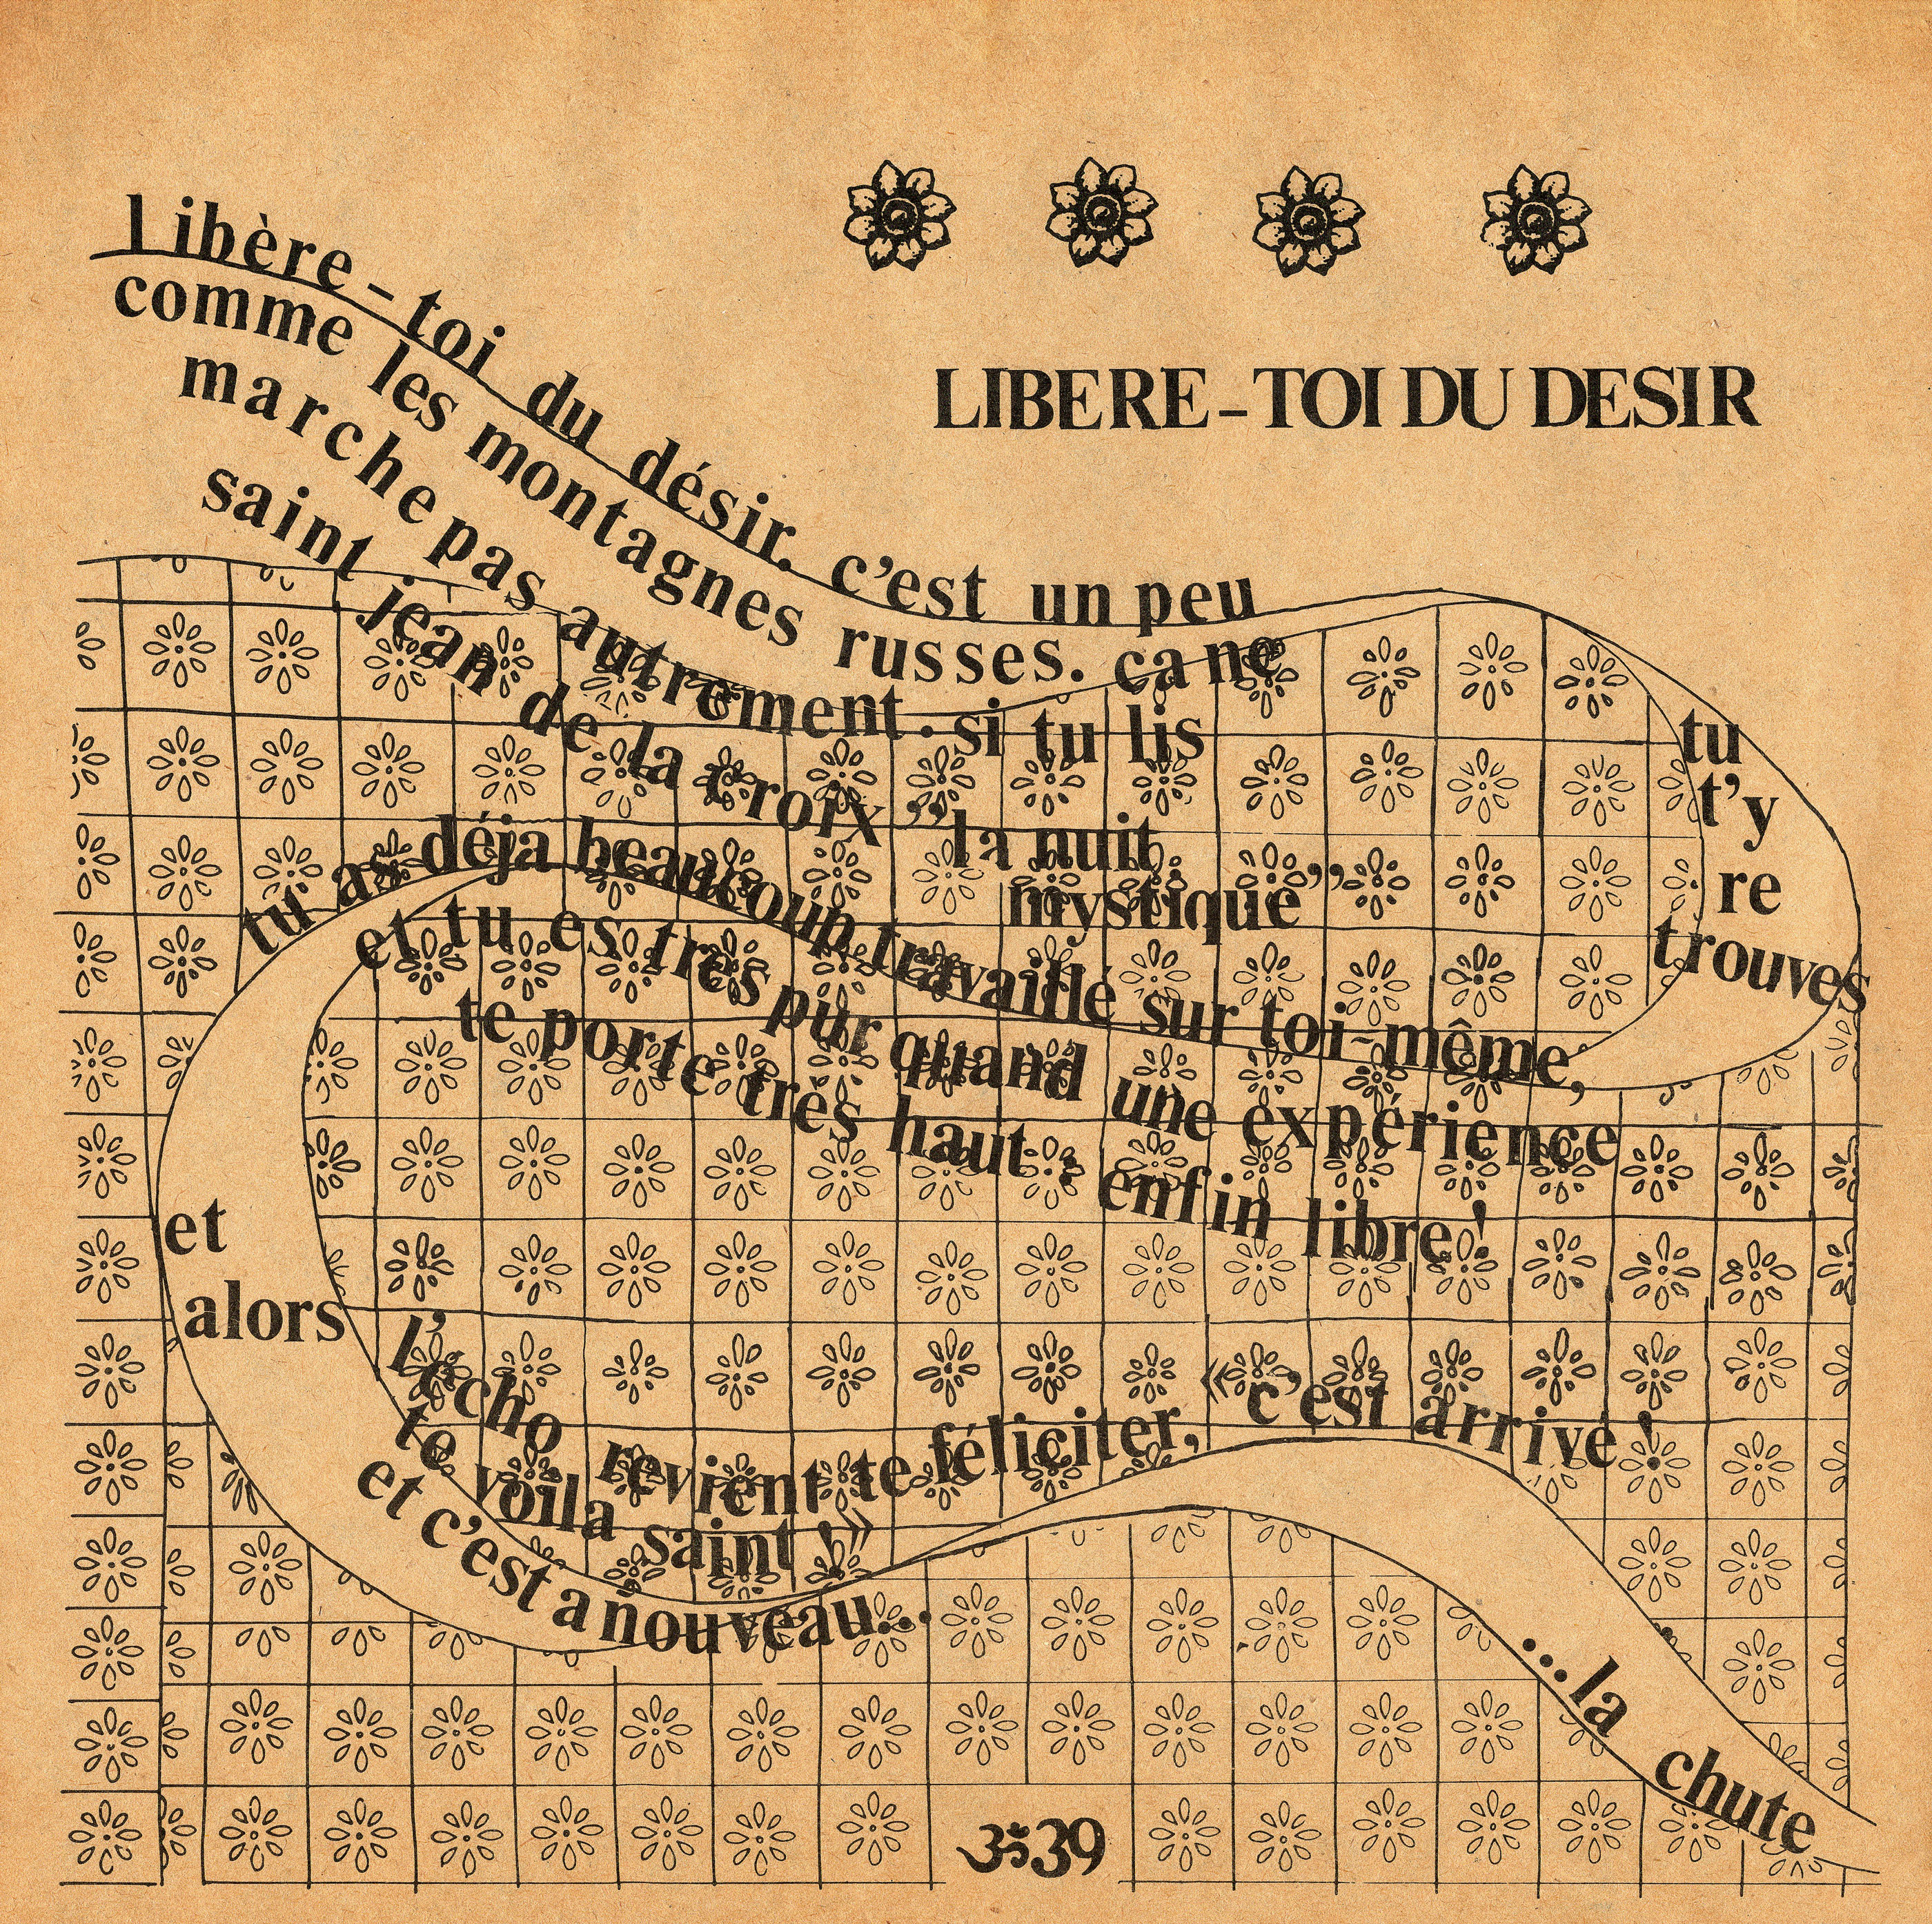 LIBERE-TOI DU DESIR
Libère-toi du désir. c'est un peu
comme les montagnes russes. ca ne
marche pas autrement. si tu lis
saint jean de la croix "la nuit
mystique"
tu
t'y
re
trouves
tu as déja beaucoup travaillé sur toi-même,
et tu es très pur quand une expérience
te porte très haut : enfin libre!
et
alors
l'écho revient te féliciter, «c'est arrivé!
te voila saint!»
et c'est a nouveau...
...la
chute
ॐ39